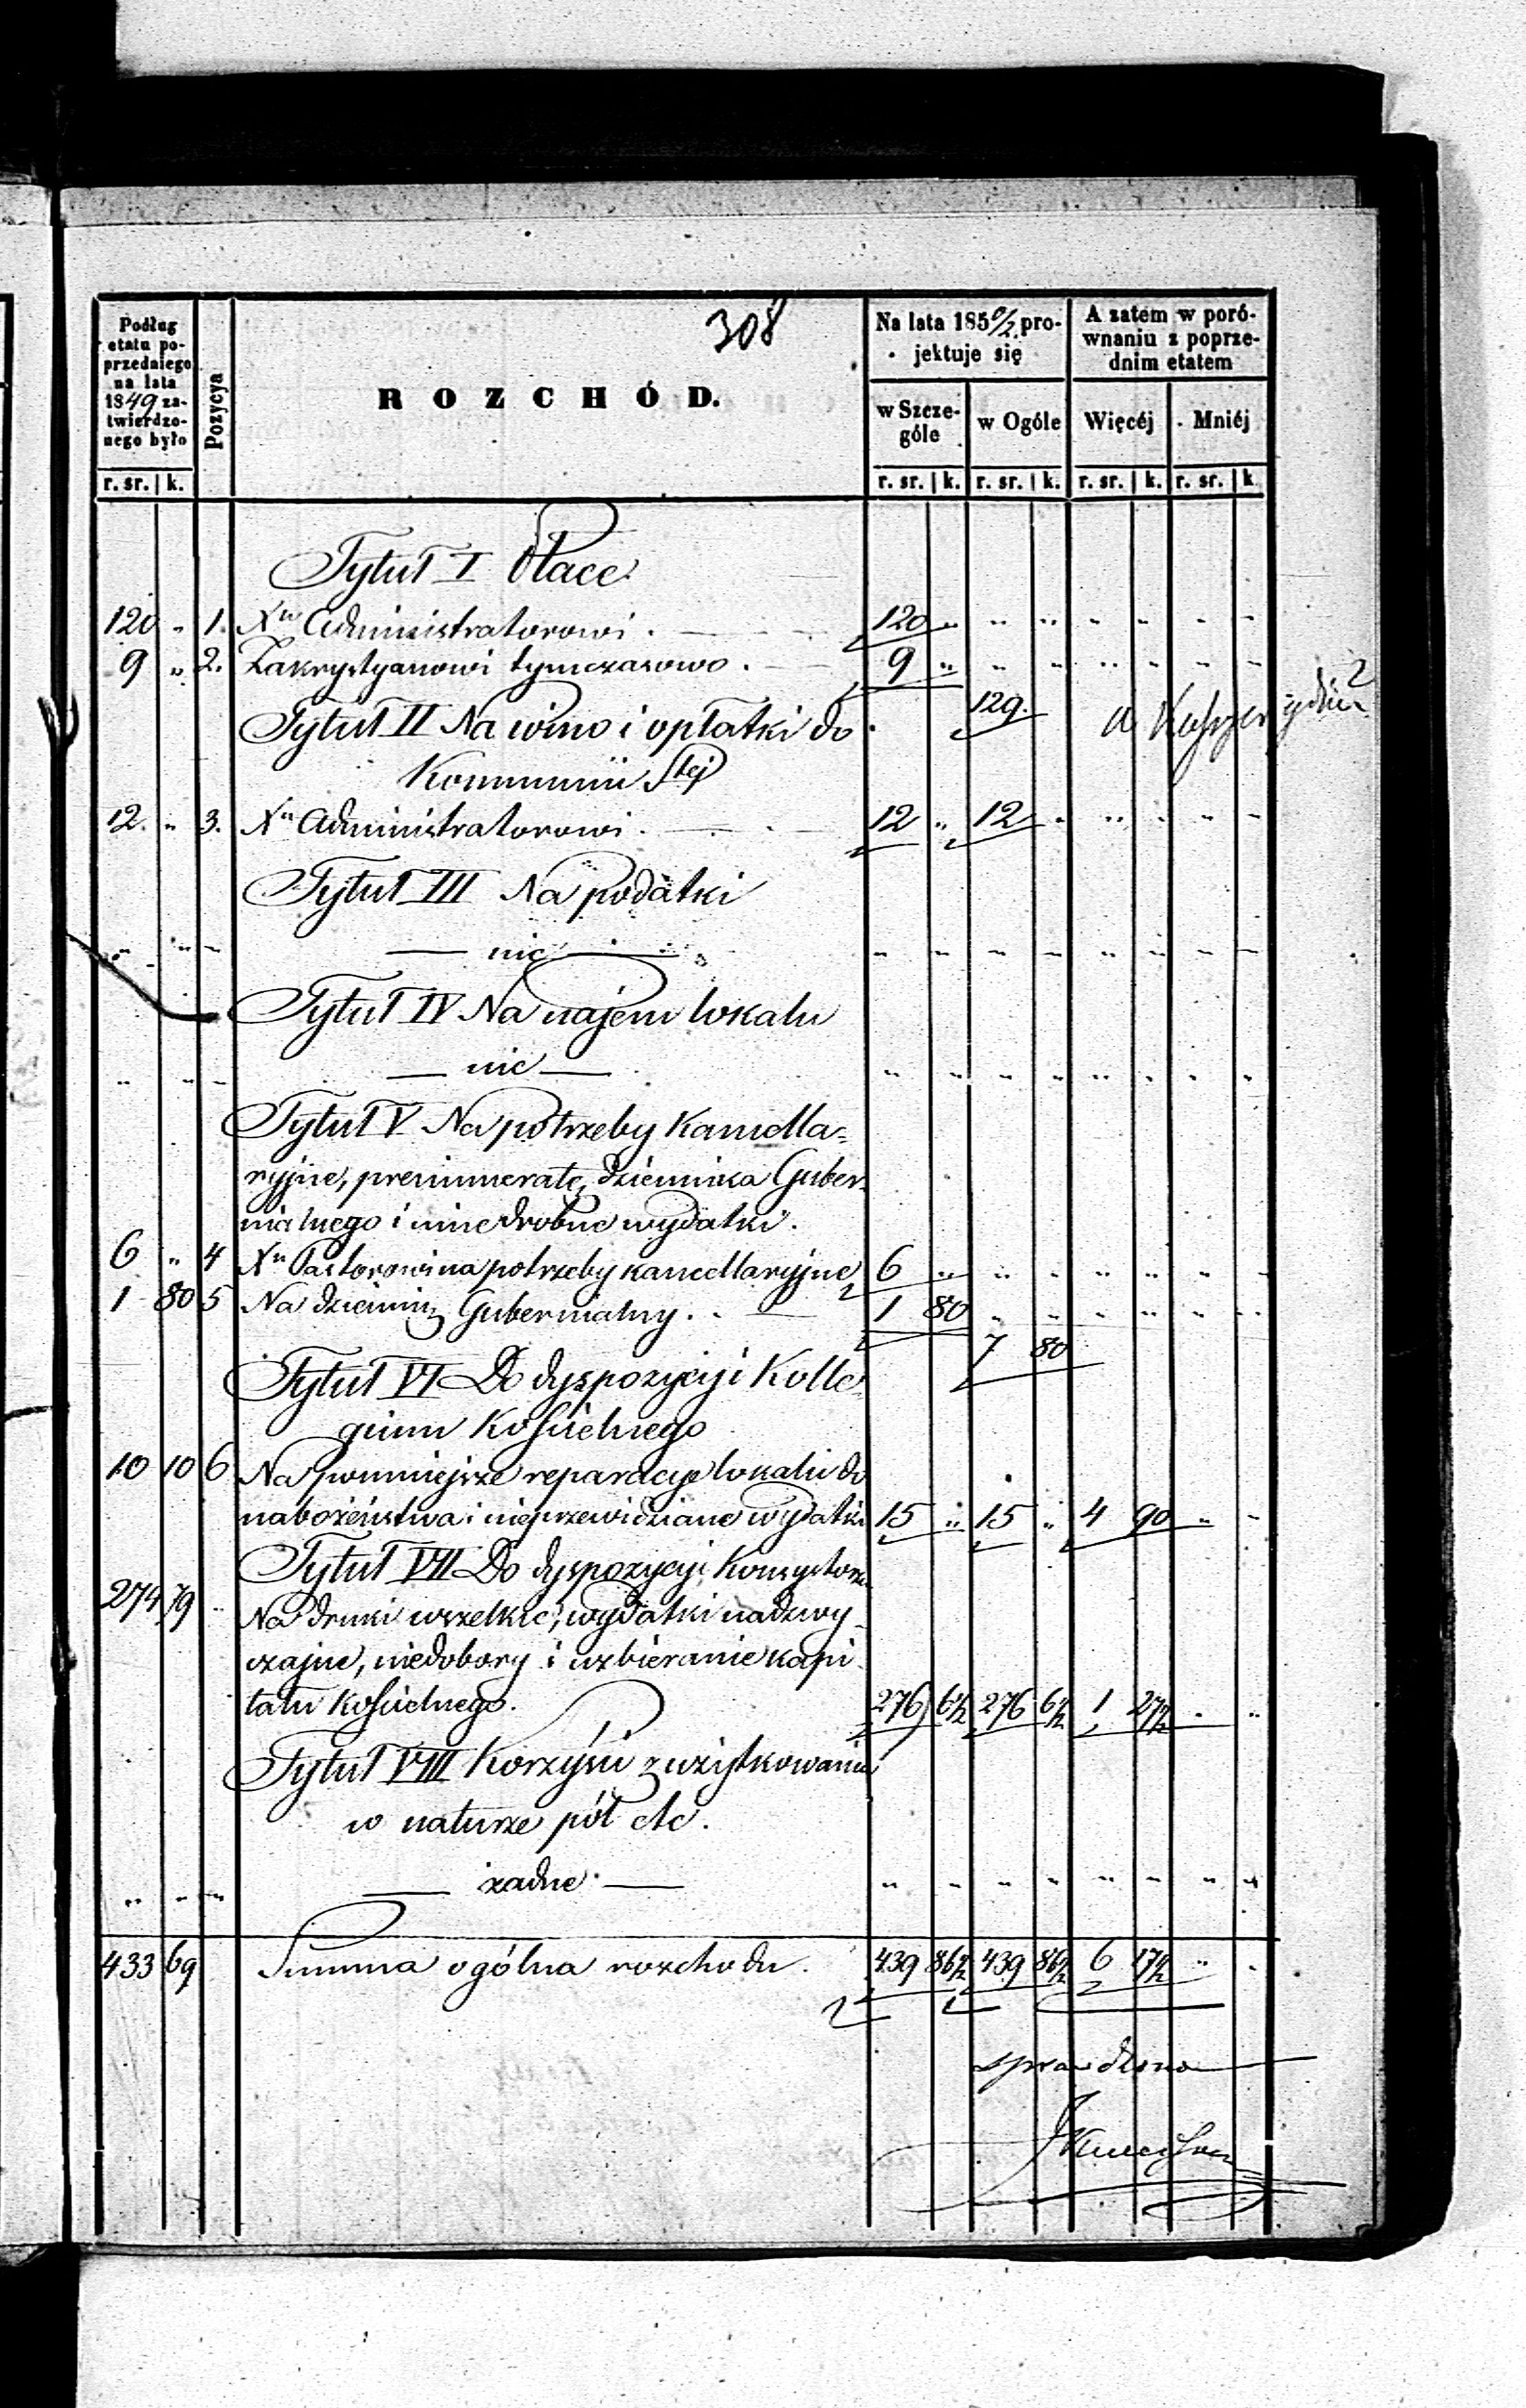 308
Podług etatu poprzedniego na lata 1849 zatwierdzonego było
Pozycya
R O Z C H Ó D.
Na lata 1850/2 projektuje się
A zatem w porównaniu z poprzednim etatem
w Szczególe
w Ogóle
Więcéj
Mniéj
r. sr. k. r. sr. k. r. sr. k. r. sr. k. r. sr. k.
Tytuł I Płace
120 " 1. Xu Administratorowi . 120 "
9 " 2. Zakrystyanowi tymczasowo . 9 "
129.
Tytuł II Na wino i opłatki do
Kommunii Stej
12. " 3. Xu Administratorowi . 12 " 12
Tytuł III Na podatki
— nic —
Tytuł IV Na najem lokalu
— nic —
Tytuł V Na potrzeby kancella=
ryjne, prenumeratę, dziennika Guber-
nialnego i inne drobne wydatki.
6 " 4 Xu Pastorowi na potrzeby kancellaryjne 6 "
1 80 5 Na dziennik Gubernialny . 1 80
7 80
Tytuł VI Do dyspozycyi Kolle-
gium Kościelnego
10 10 6 Na pomniejsze reparacye lokalu do
nabożeństwa i nieprzewidziane wydatki 15 " 15 " 4 90 "
Tytuł VII Do dyspozycyi Konsystorza
274 79 Na druki wszelkie, wydatki nadzwy-
czajne, niedobory i uzbieranie kapi-
tału Kościelnego. 276 6½ 276 6½ 1 27½
Tytuł VIII Korzyści z użytkowania
w naturze pól etc.
— żadne —
433 69 Summa ogólna rozchodu. 439 86½ 439 86½ 6 17½
sprawdzono